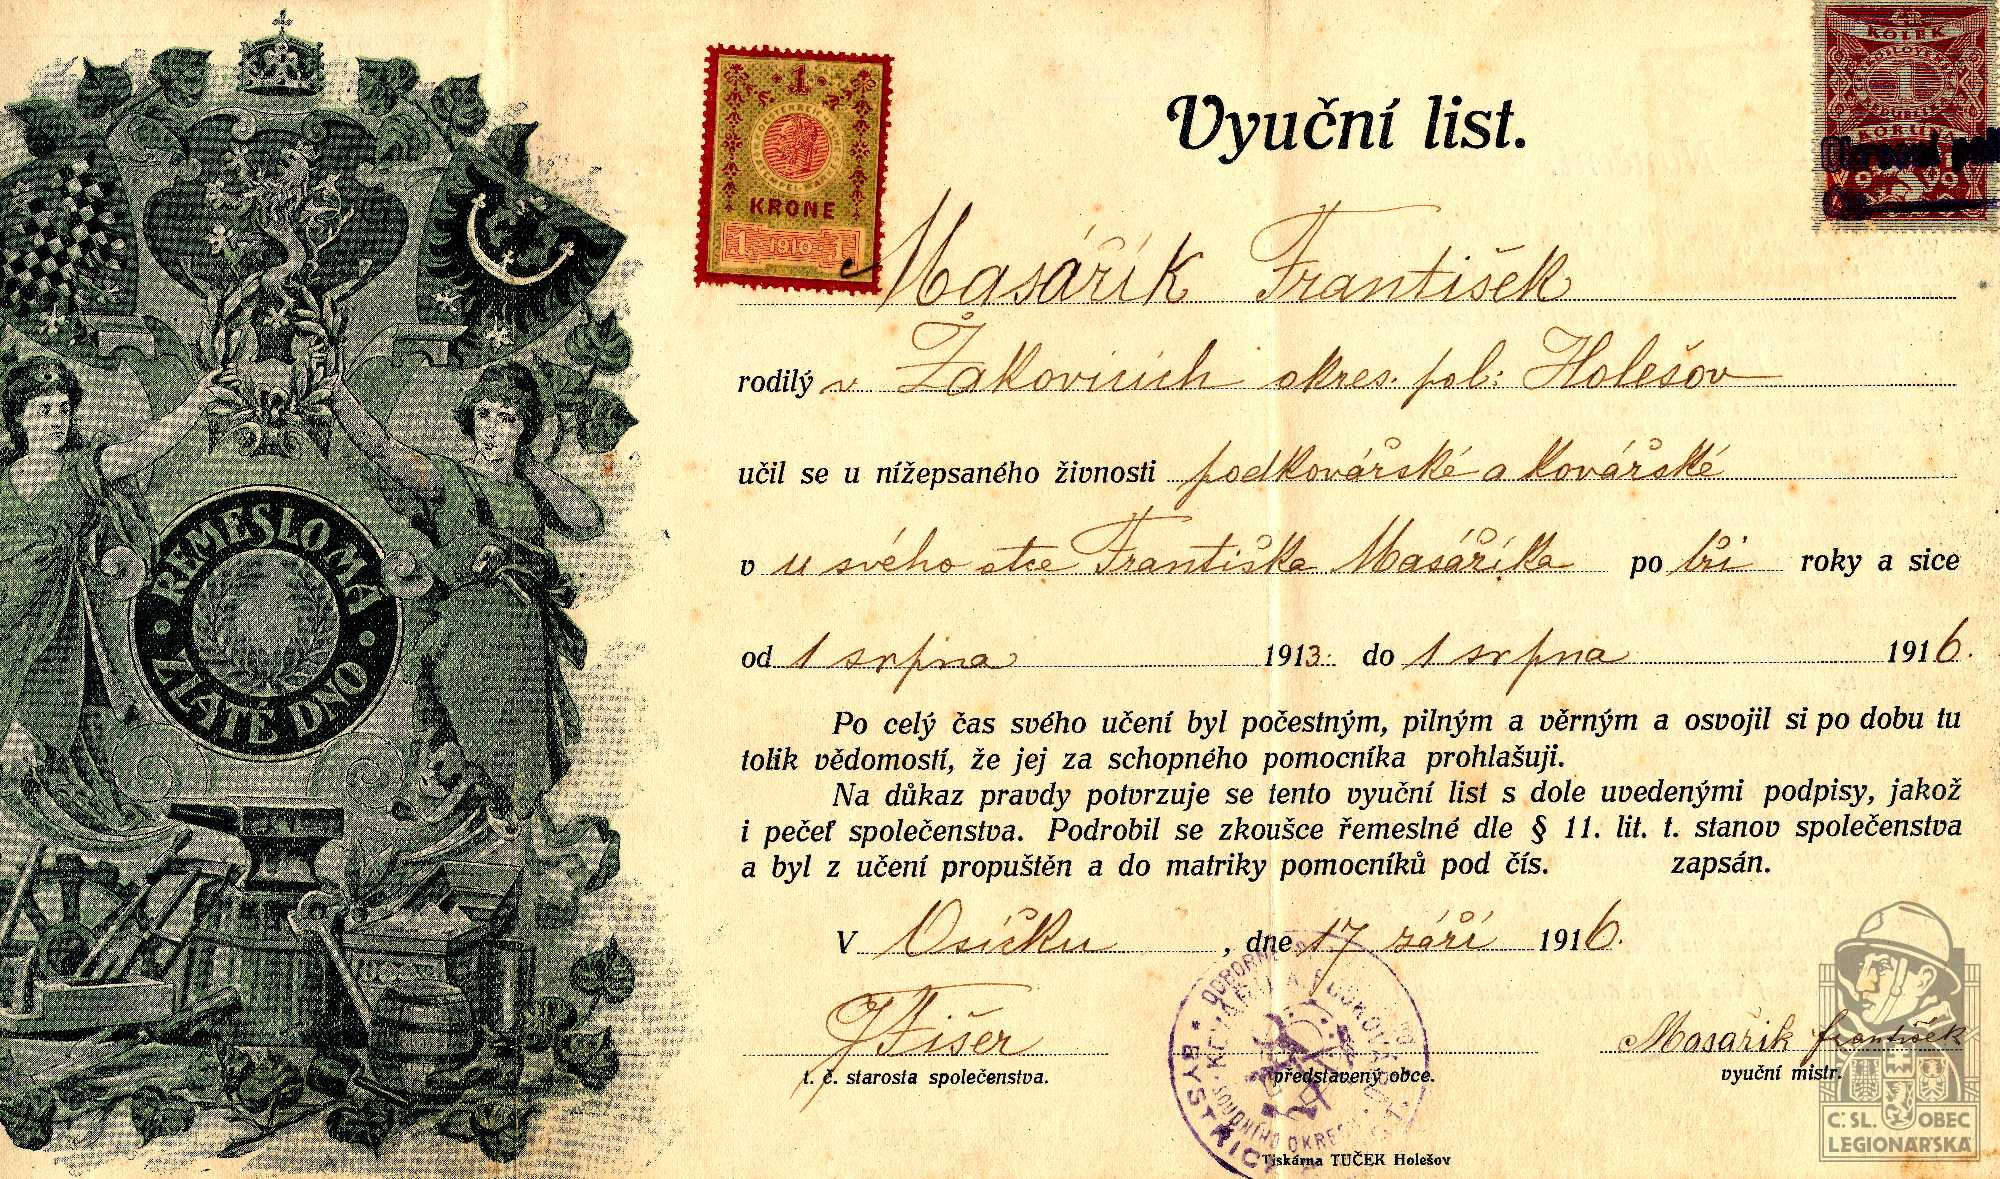 Vyuční list.
KOLEK
1
KORUNA
1
KRONE
1 1910 1
Masářík František
rodilý v Žákovicích okres. pol: Holešov
učil se u nížepsaného živnosti podkovářské a kovářské
v u svého otce Františka Masáříka po tři roky a sice
od 1 srpna 1913. do 1 srpna 1916.
Po celý čas svého učení byl počestným, pilným a věrným a osvojil si po dobu tu
tolik vědomostí, že jej za schopného pomocníka prohlašuji.
Na důkaz pravdy potvrzuje se tento vyuční list s dole uvedenými podpisy, jakož
i pečeť společenstva. Podrobil se zkoušce řemeslné dle § 11. lit. t. stanov společenstva
a byl z učení propuštěn a do matriky pomocníků pod čís. zapsán.
V Osíčku, dne 17 září 1916.
J Fišer
Masařik František
t. č. starosta společenstva.
představený obce.
vyuční mistr.
Tiskárna TUČEK Holešov
ŘEMESLO MÁ
ZLATÉ DNO
BYSTŘICE
SOUDNÍHO OKRESU
Č.SL. OBEC
LEGIONÁŘSKÁ